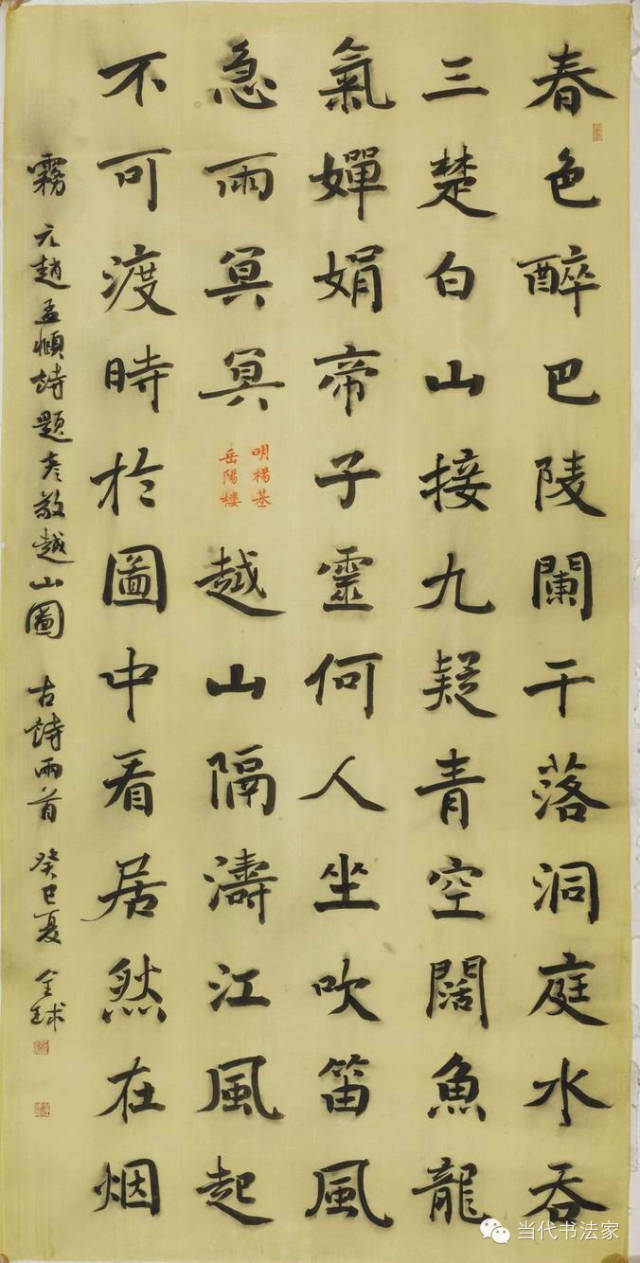 春色醉巴陵闌干落洞庭水吞
三楚白山接九疑青空闊魚龍
氣嬋娟帝子靈何人坐吹笛風
急雨冥冥
明楊基
岳陽樓
越山隔濤江風起
不可渡時於圖中看居然在烟
霧 元趙孟頫詩題彥敬越山圖 古詩兩首 癸巳夏 全球
当代书法家